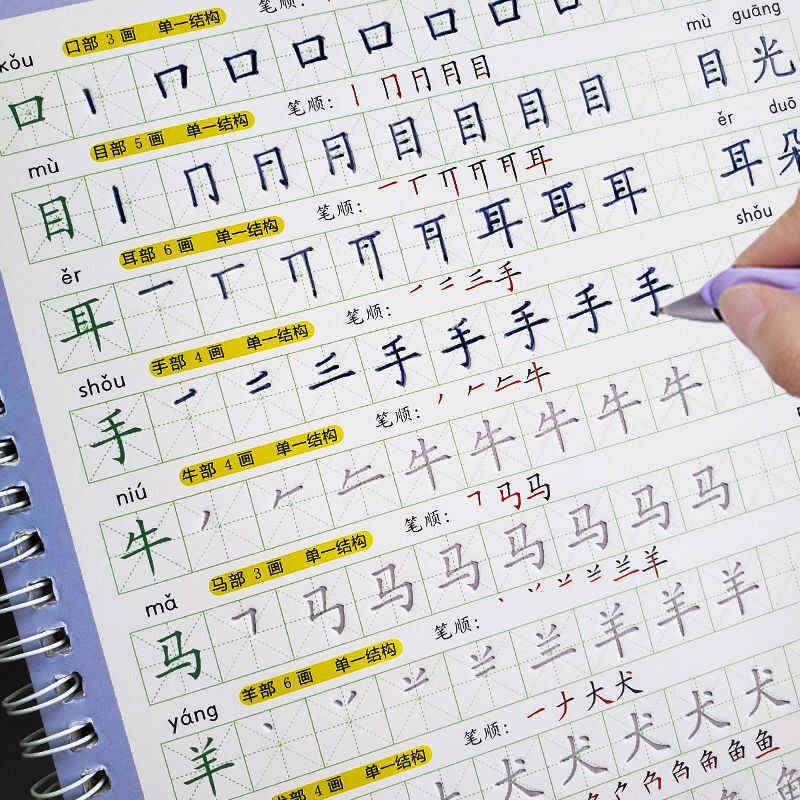 kǒu 口部 3 画 单一结构 笔顺:
口 丨 𠃍 口 口 口 口 口 口
mù 目部 5 画 单一结构 笔顺: 丨 冂 月 月 目 mù guāng
目 丨 冂 月 月 目 目 目 目 目光
ěr 耳部 6 画 单一结构 笔顺: 一 丅 丌 耳 ěr duō
耳 一 丅 丌 耳 耳 耳 耳 朵
shǒu 手部 4 画 单一结构 笔顺: 一 二 三 手 shǒu
手 一 二 三 手 手 手 手 手
niú 牛部 4 画 单一结构 笔顺: 丿 𠂉 牛
牛 丿 𠂉 牛 牛 牛 牛 牛
mǎ 马部 3 画 单一结构 笔顺: ㇕ 马 马
马 ㇕ 马 马 马 马 马 马 马
yáng 羊部 6 画 单一结构 笔顺: 丶 丷 兰 羊
羊 丶 丷 兰 羊 羊 羊
部 4 画 单一结构 笔顺: 一 ナ 大 犬
犬 犬 犬 犬 犬
角 鱼 鱼